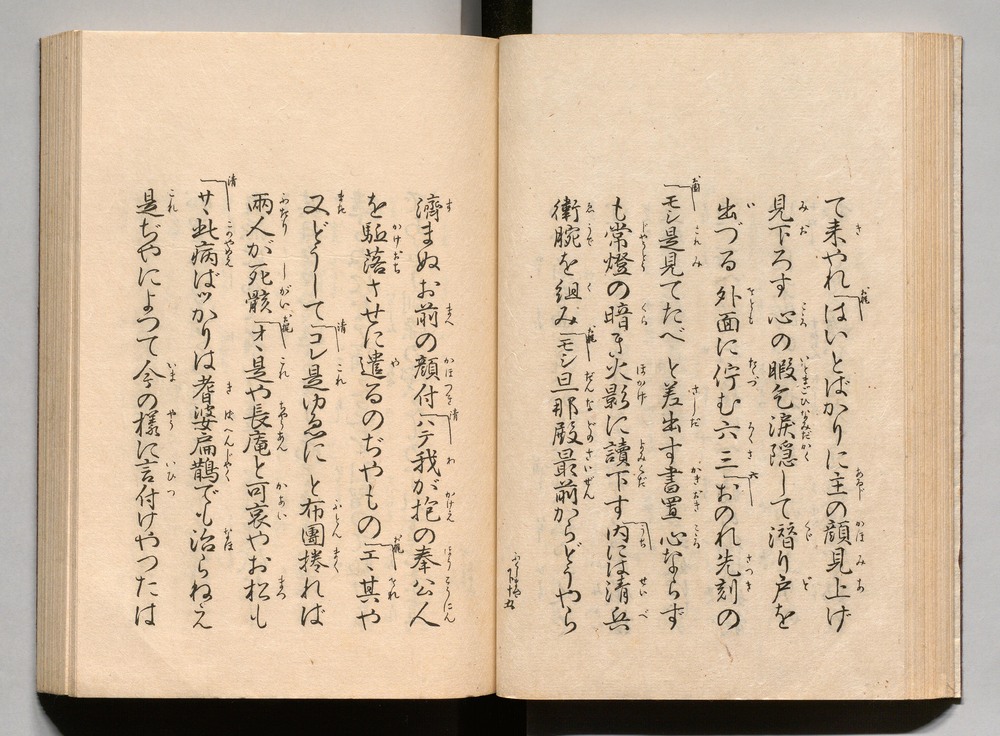 て来やれ「はいとばかりに主の顔見上げ
見下ろす心の暇乞涙隠して潜り戸を
出づる外面に佇む六三「おのれ先刻の
「モシ是見てたべと差出す書置心ならず
も常燈の暗き火影に讀下す「内には清兵
衛腕を組み「モシ旦那殿最前からどうやら
濟まぬお前の顔付「ハテ我が抱の奉公人
を駈落させに遣るのぢやもの「エヽ其や
又どうして「コレ是ゆゑにと布團捲れば
兩人が死骸「オヽ是や長庵と可哀やお松も
「サヽ此病ばッかりは耆婆扁鵲でも治らねえ
是ぢやによつて今の様に言付けやつたは